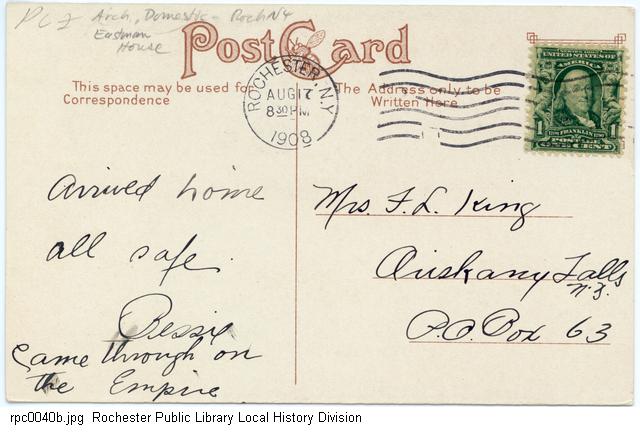 PC 7 Arch, Domestic - Roch NY
Eastman
House
Post Card
This space may be used for
Correspondence
The Address only to be
Written Here
ROCHESTER, N.Y.
AUG 17
8 30 PM
1908
SERIES 1902
UNITED STATES OF
AMERICA
1706 FRANKLIN 1790
1 POSTAGE 1
ONE CENT
arrived home
all safe.
Bessie
Came through on
the Empire
Mrs. F. L. King
Oriskany Falls
N.Y.
P.O. Box 63
rpc0040b.jpg Rochester Public Library Local History Division